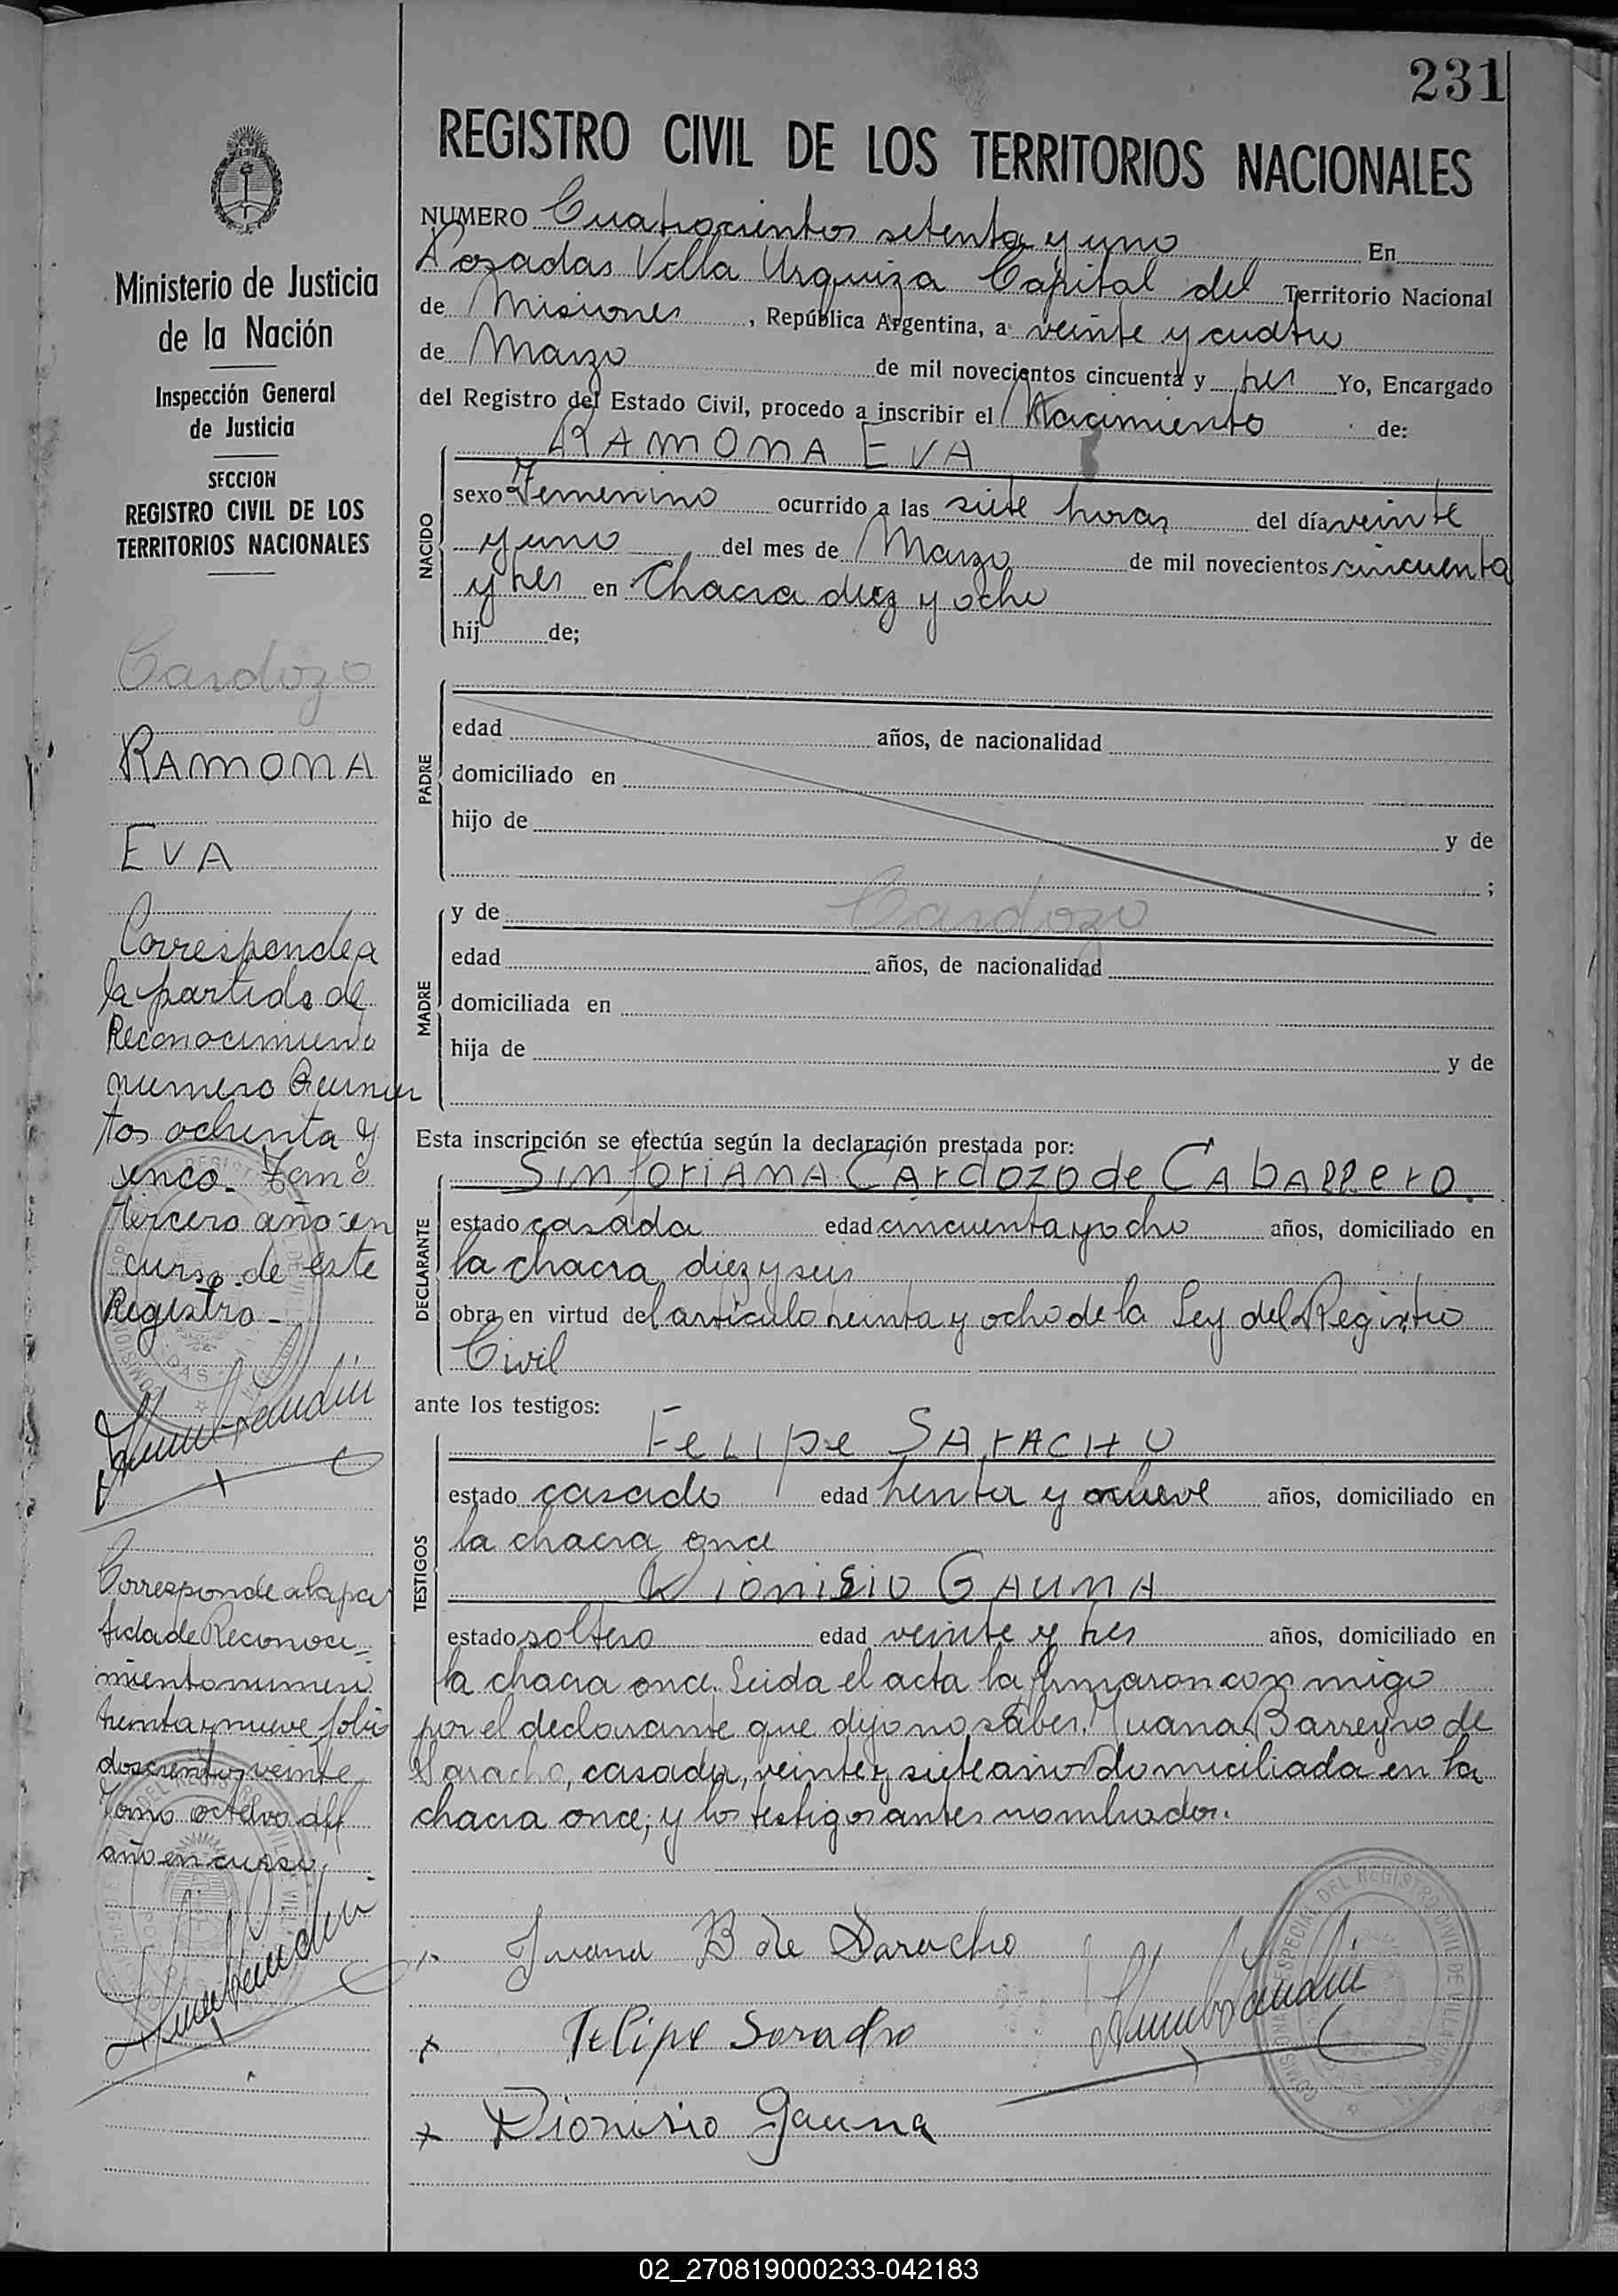 231
REGISTRO CIVIL DE LOS TERRITORIOS NACIONALES
Ministerio de Justicia
de la Nación
Inspección General
de Justicia
SECCION
REGISTRO CIVIL DE LOS
TERRITORIOS NACIONALES
Cardozo
RAMONA
EVA
Corresponde a
la partida de
Reconocimiento
numero Quinien
tos ochenta y
cinco. Tomo
tercero año en
curso de este
Registro -
Corresponde a la par
tida de Reconoci
miento numero
treinta y nueve folio
doscientos veinte
Tomo octavo del
año en curso
NUMERO Cuatrocientos setenta y uno En
Posadas Villa Urquiza Capital del Territorio Nacional
de Misiones, República Argentina, a veinte y cuatro
de Marzo de mil novecientos cincuenta y tres Yo, Encargado
del Registro del Estado Civil, procedo a inscribir el Nacimiento de:
NACIDO
RAMONA EVA
sexo Femenino ocurrido a las siete horas del día veinte
y uno del mes de Marzo de mil novecientos cincuenta
y tres en Chacra diez y ocho
hij de;
PADRE
edad años, de nacionalidad
domiciliado en
hijo de y de
;
MADRE
y de Cardozo
edad años, de nacionalidad
domiciliada en
hija de y de
Esta inscripción se efectúa según la declaración prestada por:
DECLARANTE
Sinforiana Cardozo de Caballero.
estado casada edad cincuenta y ocho años, domiciliado en
la chacra diez y seis
obra en virtud del articulo treinta y ocho de la Ley del Registro
Civil
ante los testigos:
TESTIGOS
Felipe SARACHO
estado casado edad treinta y nueve años, domiciliado en
la chacra once
Dionisio GAUNA
estado soltero edad veinte y tres años, domiciliado en
la chacra once. Leida el acta la firmaron con migo
por el declarante que dijo no saber. Juana Barreyro de
Saracho, casada, veinte y siete años domiciliada en la
chacra once; y los testigos antes nombrados.
Juana B de Saracho
x Felipe Saracho
x Dionisio Gauna
02_270819000233-042183